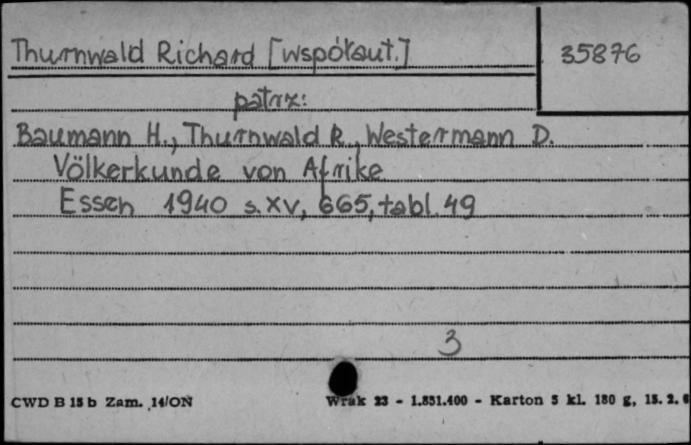 Thurnwald Richard [współaut.] 35876
patrz:
Baumann H., Thurnwald R., Westermann D.
Völkerkunde von Afrike
Essen 1940 s. XV, 665, tabl. 49
3
CWD B 15 b Zam. 14/ON Wrak 23 - 1.851.400 - Karton 5 kl. 180 g, 15. 2. 6